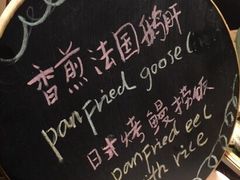 香煎法国鹅肝
panfried goose l
日式烤鳗捞饭
panfried eel
with rice